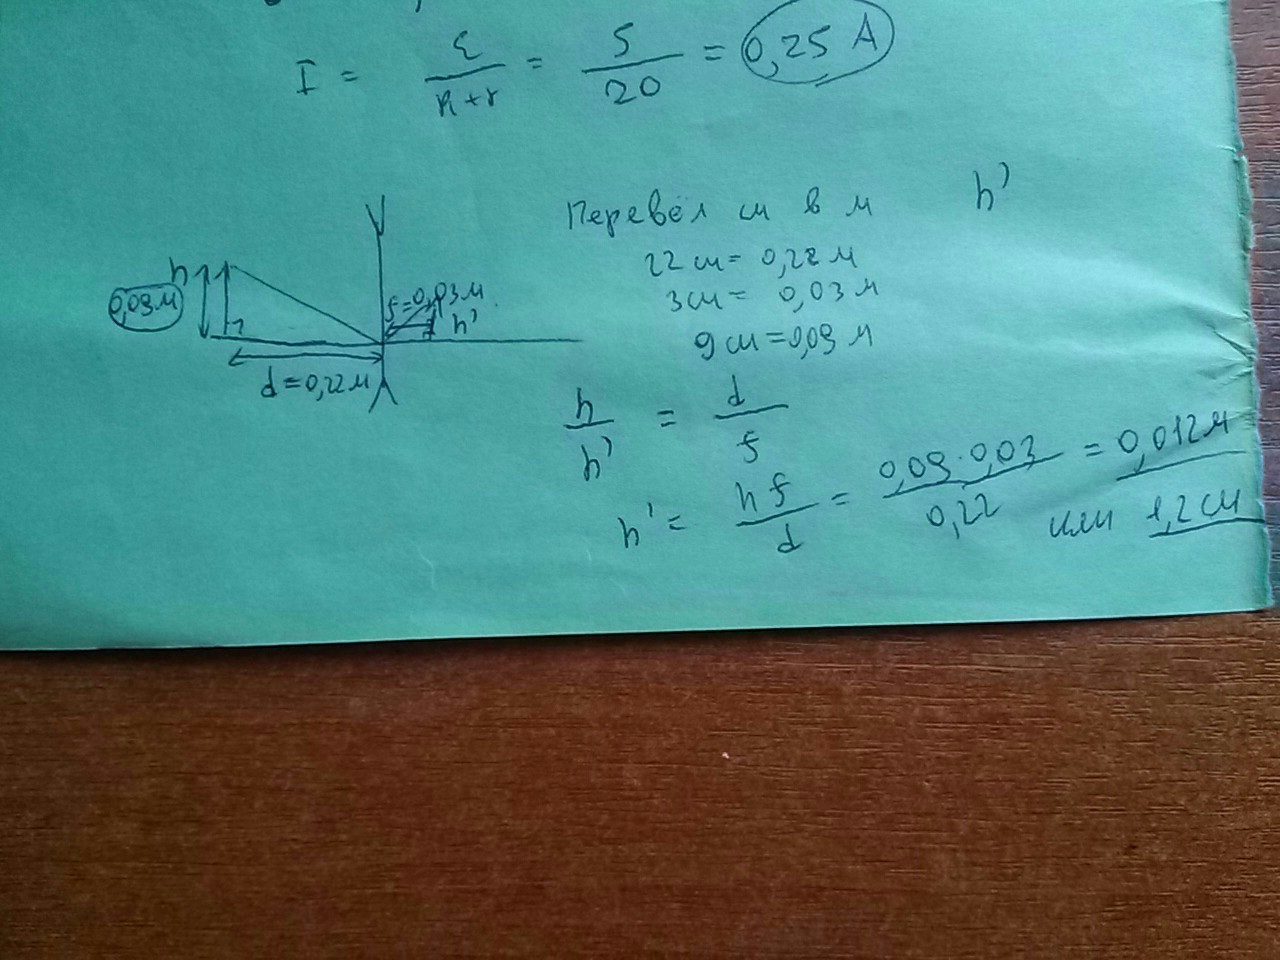 I = ε/(R+r) = 5/20 = 0,25 А
Перевёл см в м
h'
22 см = 0,22 м
3 см = 0,03 м
9 см = 0,09 м
h
0,09 м
f = 0,03 м
h'
d = 0,22 м
h/h' = d/f
h' = hf/d = 0,09·0,03/0,22 = 0,012 м
или 1,2 см